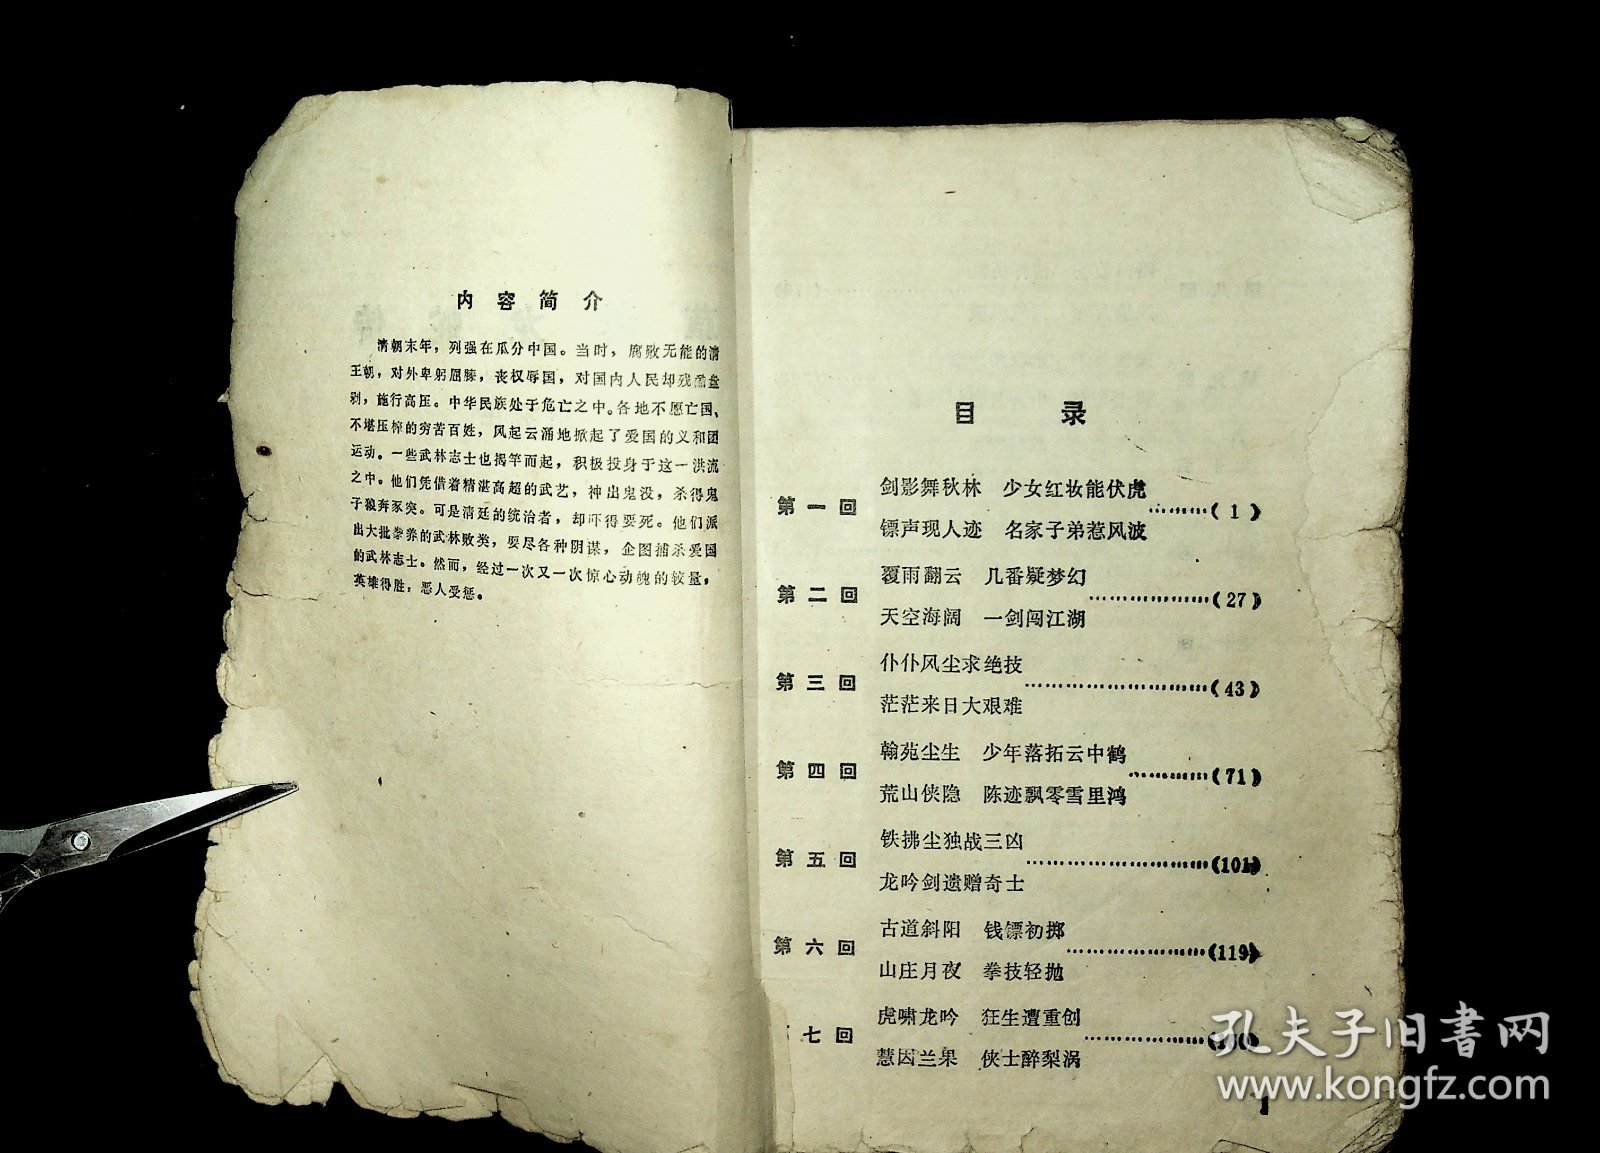 内容简介
清朝末年，列强在瓜分中国。当时，腐败无能的清
王朝，对外卑躬屈膝，丧权辱国，对国内人民却残酷盘
剥，施行高压。中华民族处于危亡之中。各地不愿亡国、
不堪压榨的穷苦百姓，风起云涌地掀起了爱国的义和团
运动。一些武林志士也揭竿而起，积极投身于这一洪流
之中。他们凭借着精湛高超的武艺，神出鬼没，杀得鬼
子狼奔豕突。可是清廷的统治者，却吓得要死。他们派
出大批豢养的武林败类，要尽各种阴谋，企图捕杀爱国
的武林志士。然而，经过一次又一次惊心动魄的较量，
英雄得胜，恶人受惩。
目录
第一回 剑影舞秋林 少女红妆能伏虎
镖声现人迹 名家子弟惹风波 ………(1)
第二回 覆雨翻云 几番疑梦幻
天空海阔 一剑闯江湖 ………………(27)
第三回 仆仆风尘求绝技
茫茫来日大艰难 ………………………(43)
第四回 翰苑尘生 少年落拓云中鹤
荒山侠隐 陈迹飘零雪里鸿 …………(71)
第五回 铁拂尘独战三凶
龙吟剑遗赠奇士 ………………………(101)
第六回 古道斜阳 钱镖初掷
山庄月夜 拳技轻抛 …………………(119)
七回 虎啸龙吟 狂生遭重创
慧因兰果 侠士醉梨涡 ………………
1
孔夫子旧书网
www.kongfz.com